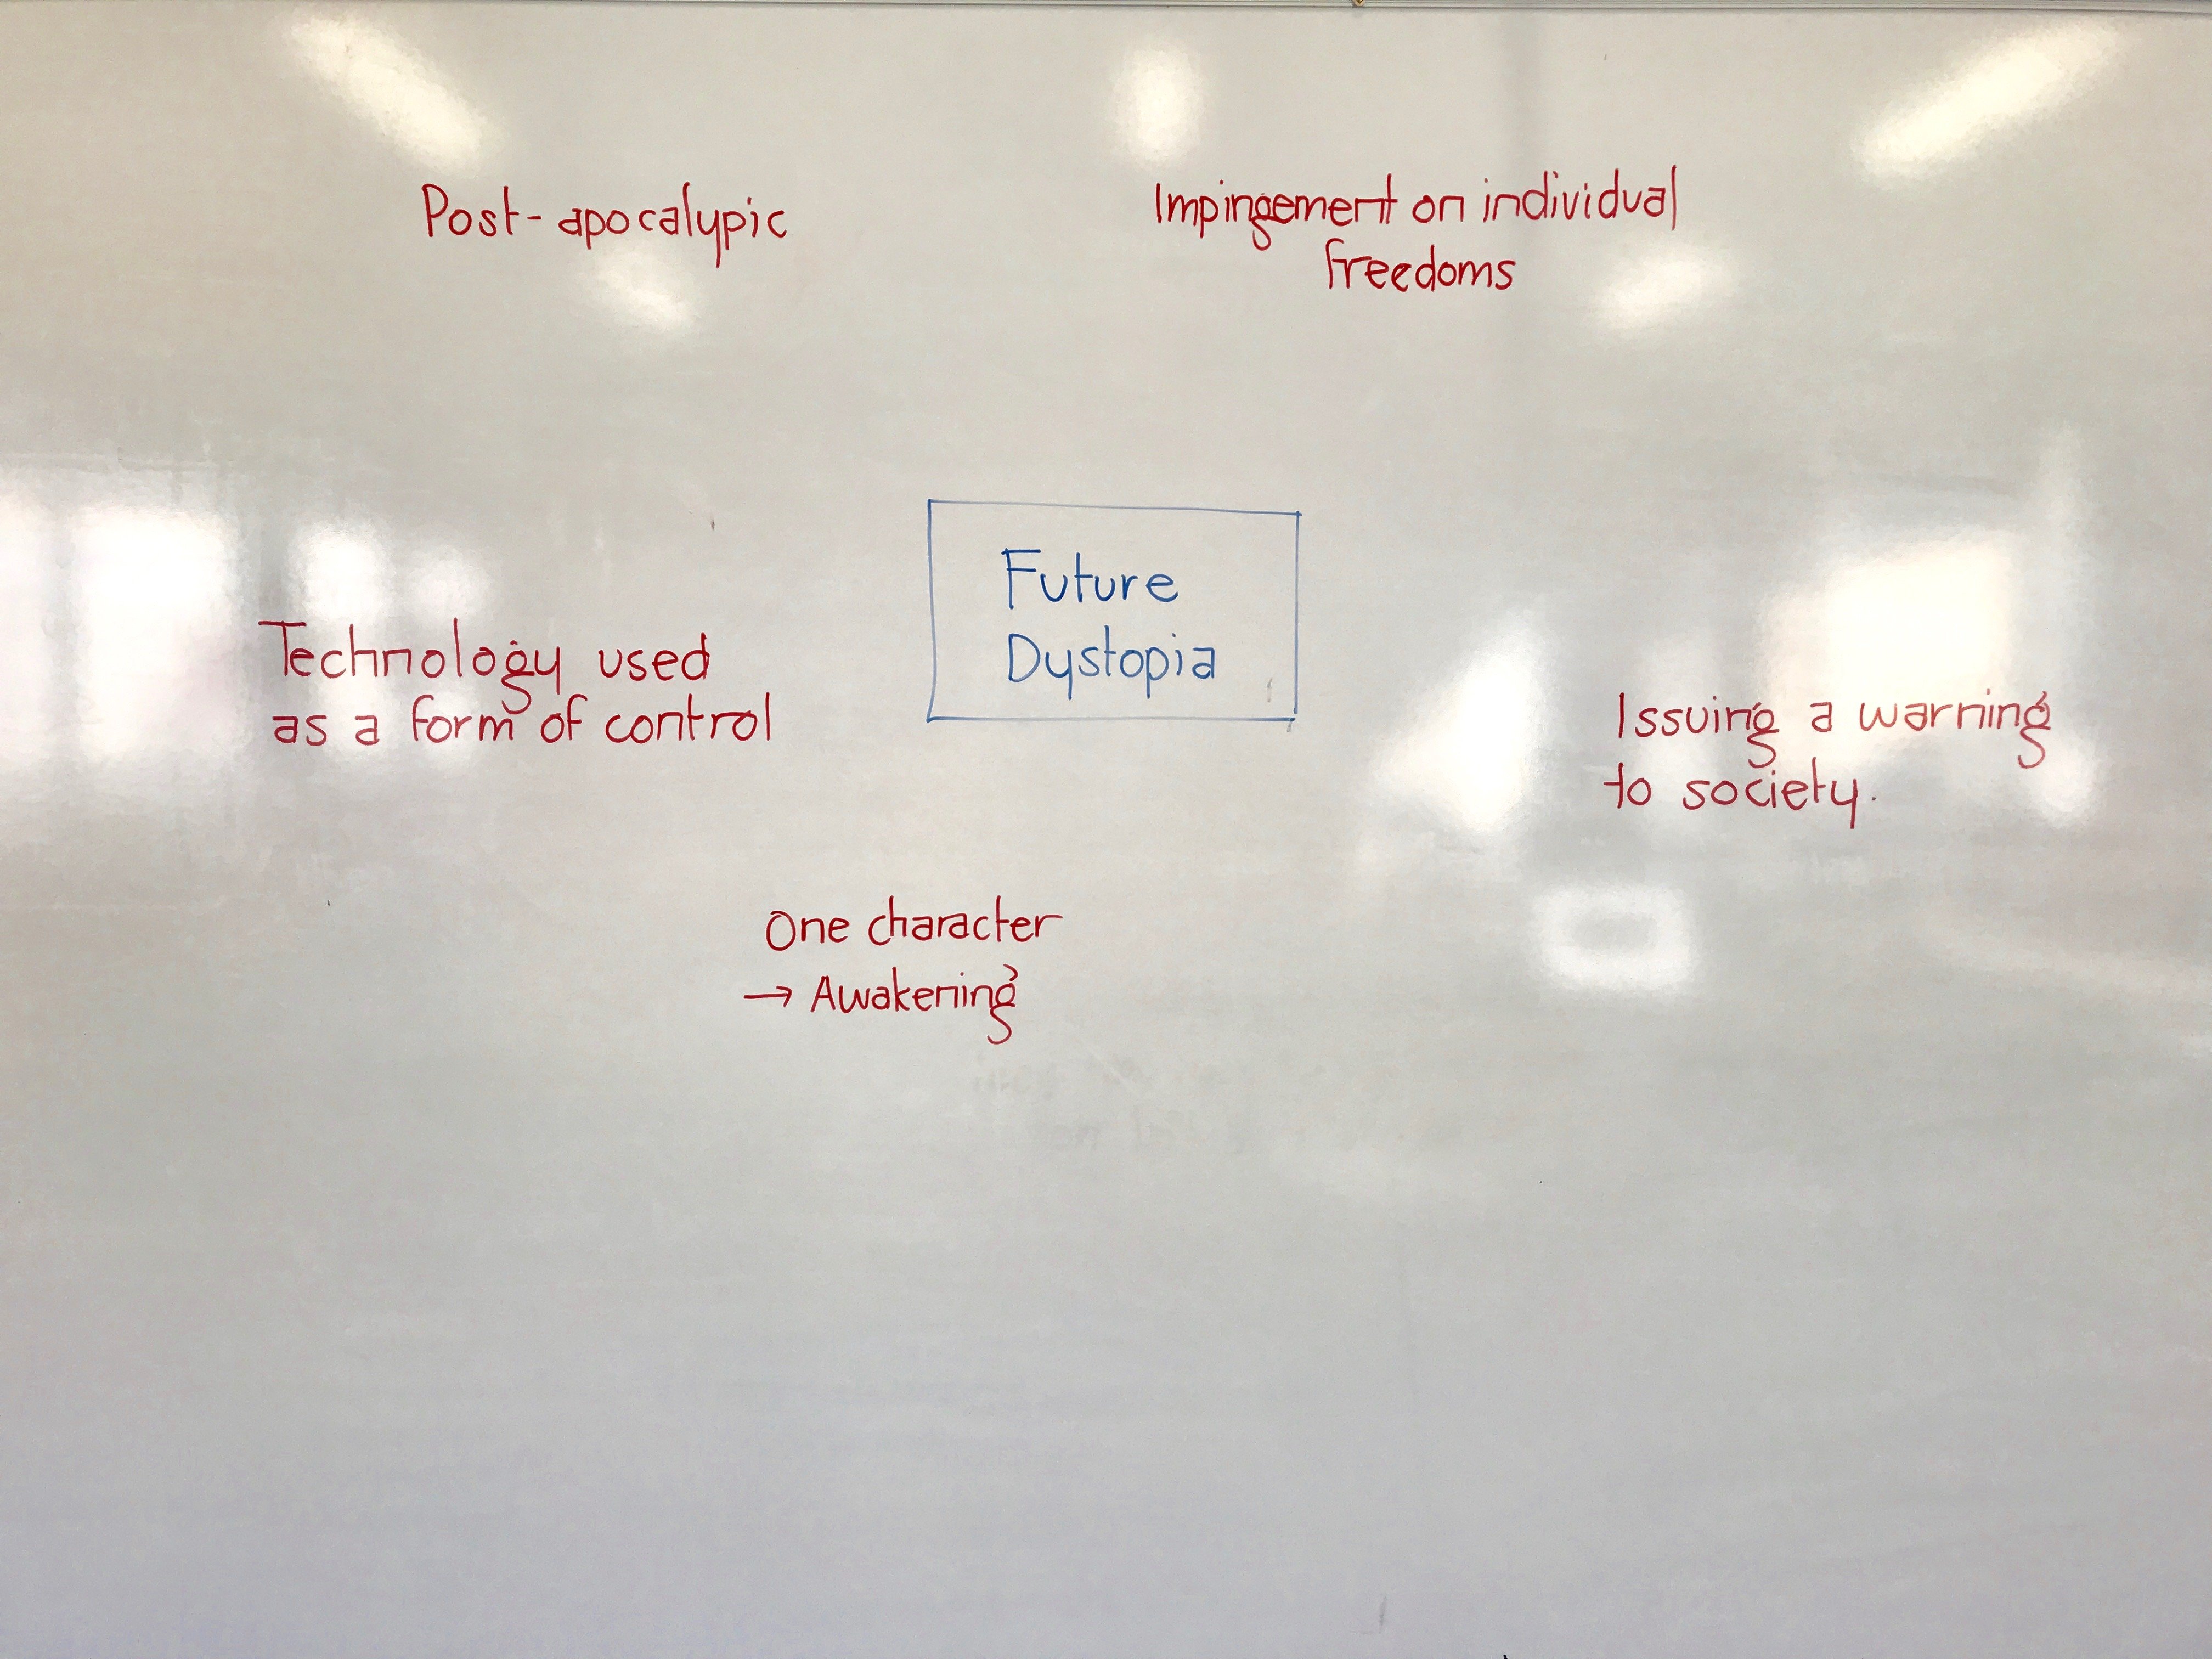 Post-apocalypic
Impingement on individual
freedoms
Future
Dystopia
Technology used
as a form of control
Issuing a warning
to society.
One character
→ Awakening